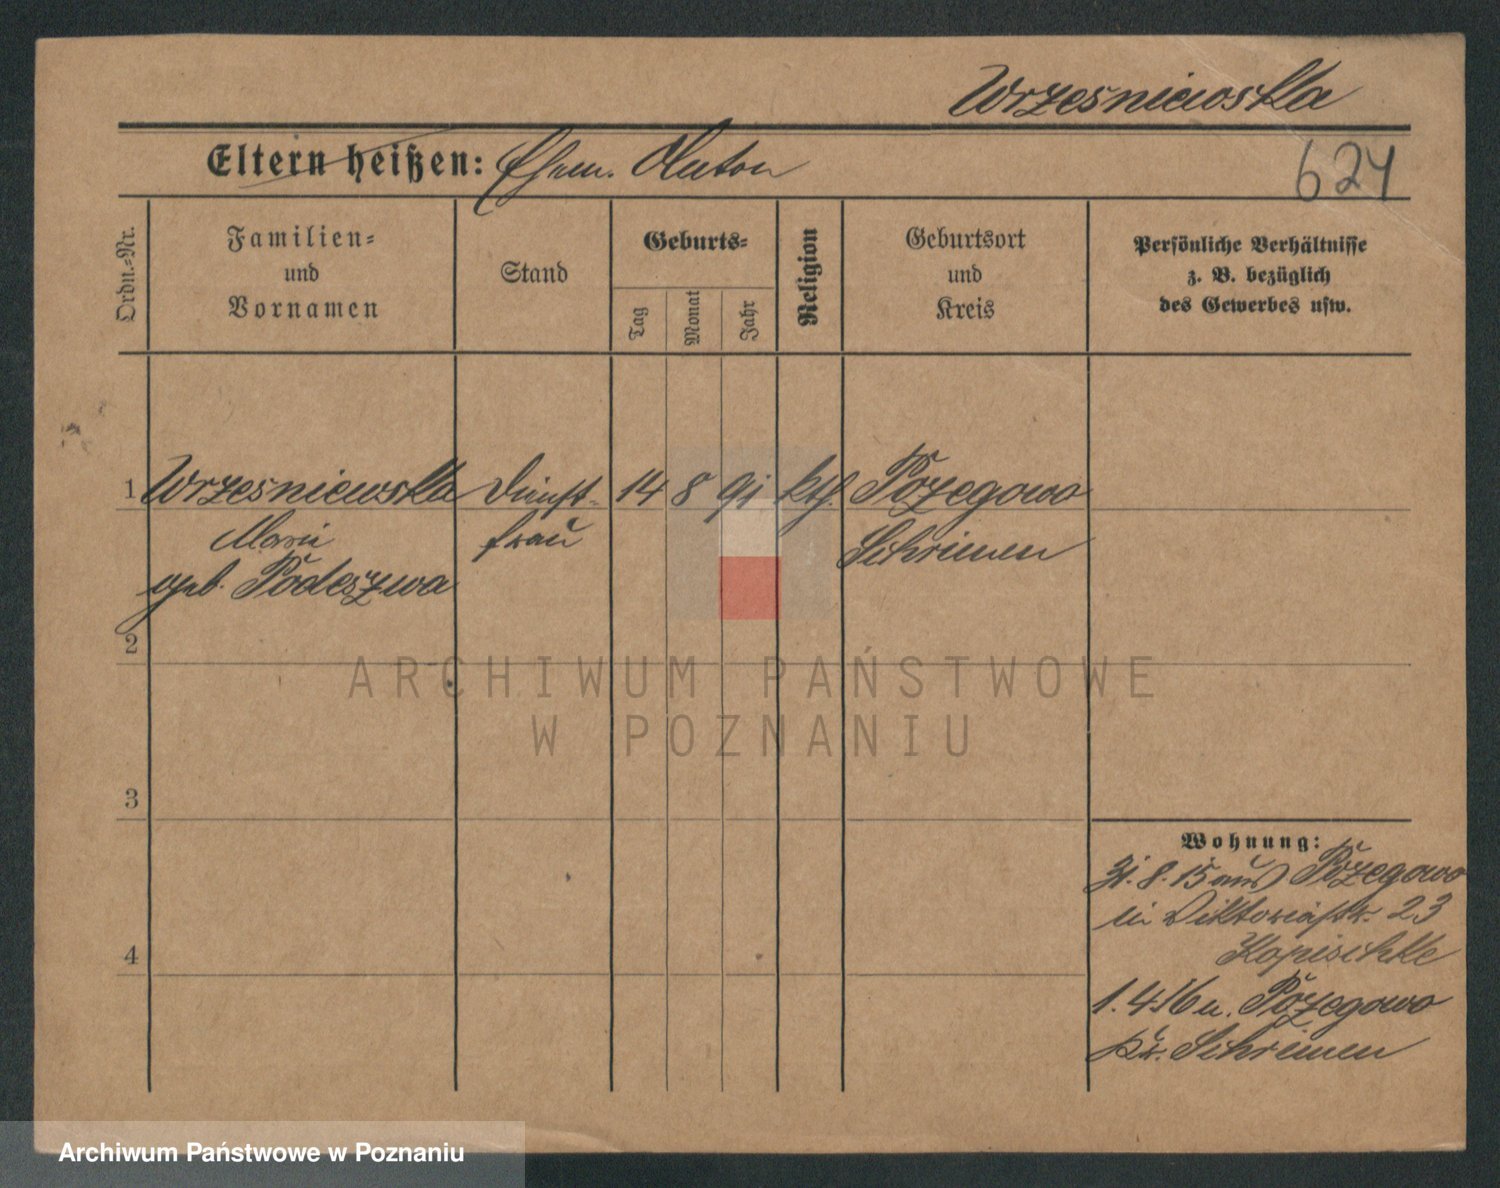 Wrzesniewska
Eltern heißen: Ehem. Anton
624
Ordn.=Nr.
Familien=
und
Vornamen
Stand
Geburts=
Tag
Monat
Jahr
Religion
Geburtsort
und
Kreis
Persönliche Verhältnisse
z. B. bezüglich
des Gewerbes usw.
1 Wrzesniewska Dienst- 14 8 91 kth. Pozegowo
Marie frau Schrimm
geb. Podeszwa
2
ARCHIWUM PAŃSTWOWE
W POZNANIU
3
Wohnung:
31. 8. 15 aus Pozegowo
in Viktoriastr. 23
Kopischke
4
1. 4. 16 n. Pozegowo
Kr. Schrimm
Archiwum Państwowe w Poznaniu